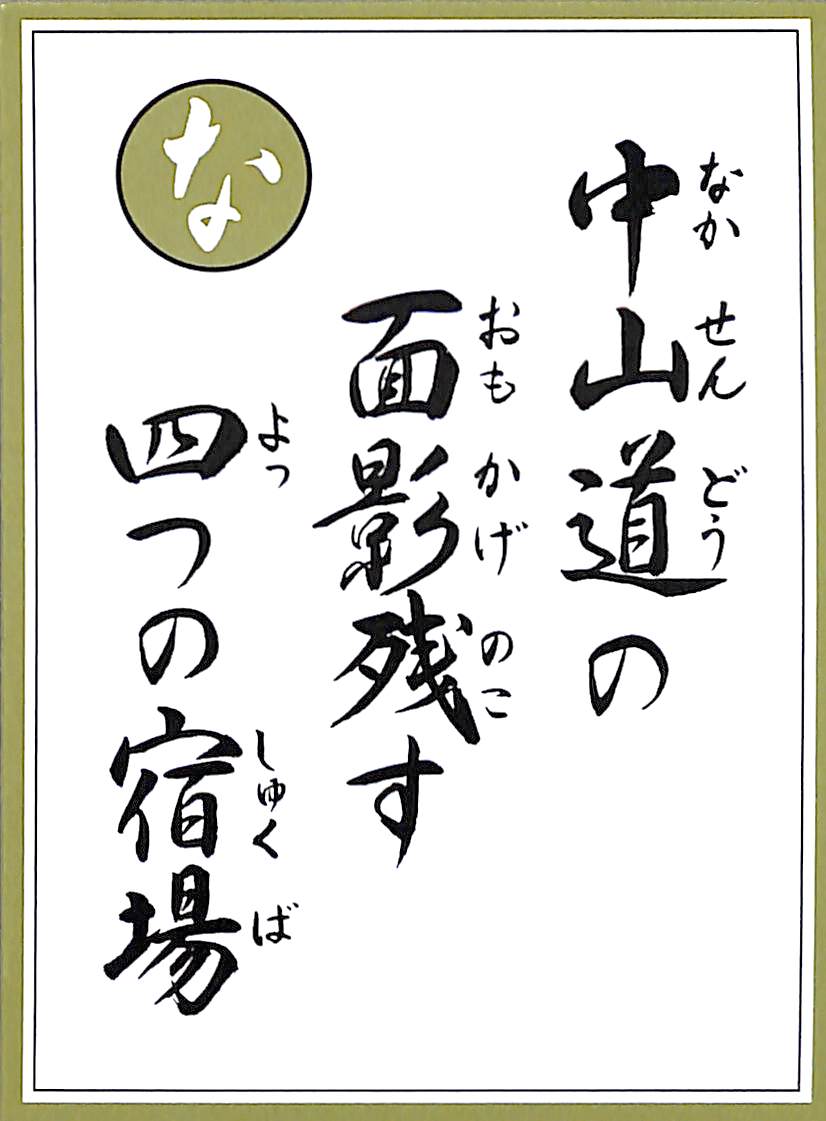 な
中山道の
面影残す
四つの宿場
なかせんどう
おもかげのこ
よっ
しゅくば